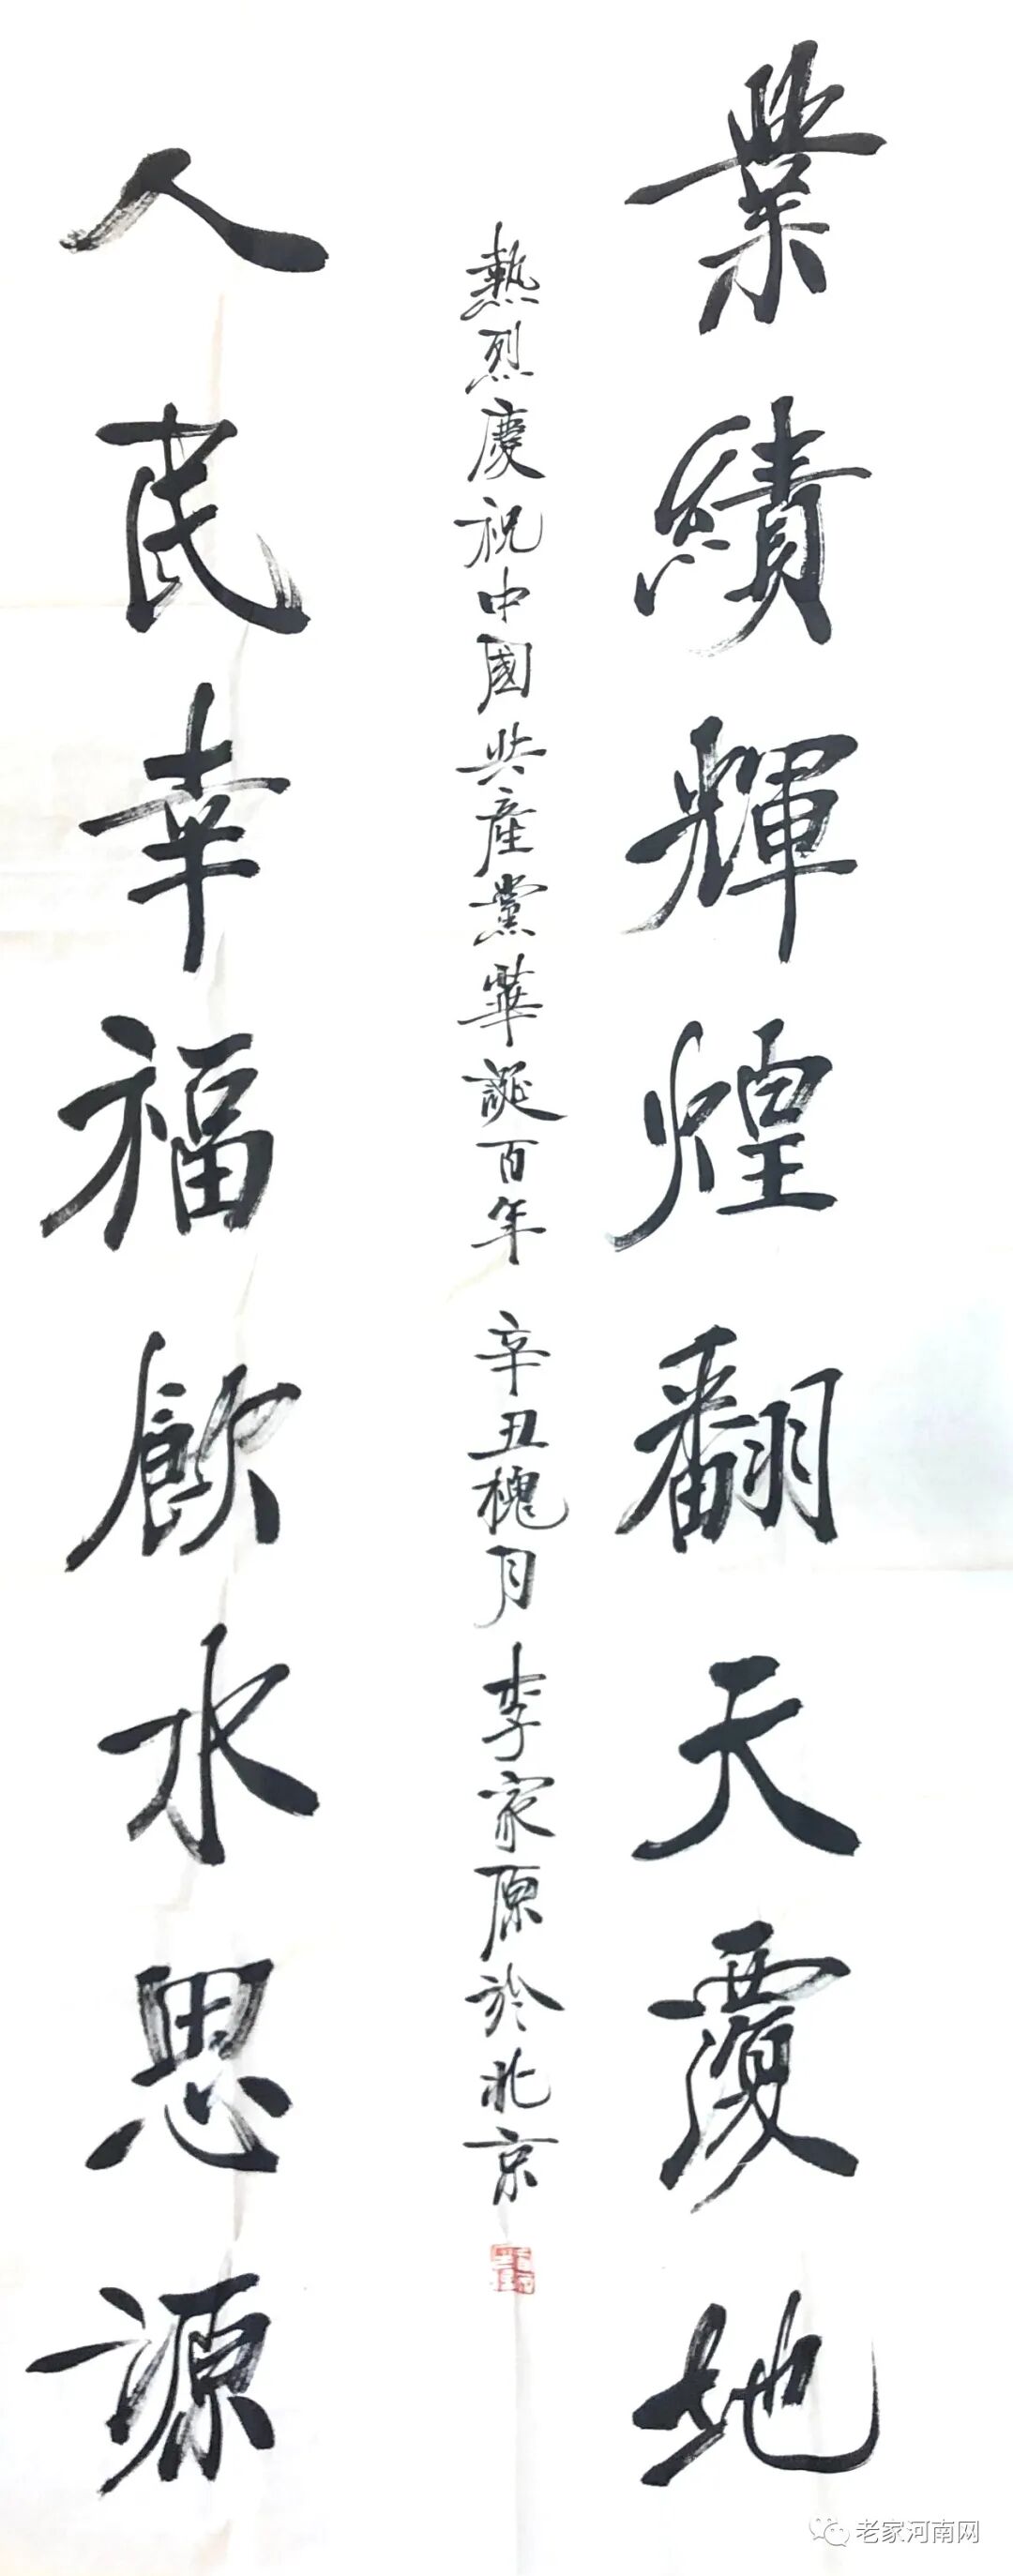 業績輝煌翻天覆地
熱烈慶祝中國共產黨華誕百年 辛丑槐月李家原於北京
人民幸福飲水思源
老家河南网